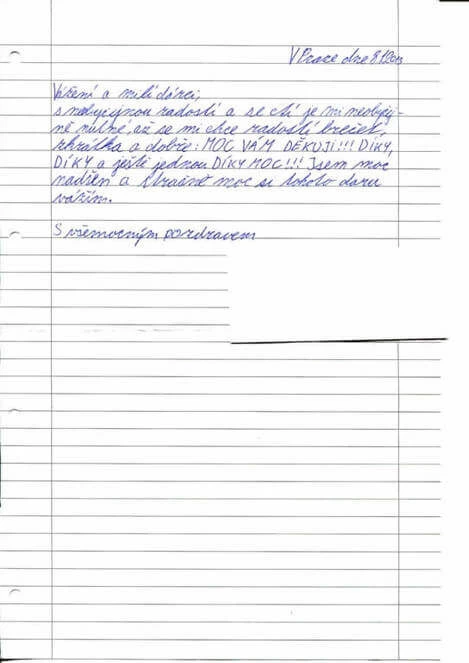 V Praze dne
Vážení a milí dárci,
s neobyčejnou radostí a se ctí je mi neobyčej-
ně milé, až se mi chce radostí brečet,
zkrátka a dobře: MOC VÁM DĚKUJI!!! DÍKY,
DÍKY a ještě jednou DÍKY MOC!!! Jsem moc
nadšen a strašně moc si tohoto daru
vážím.
S všemocným pozdravem